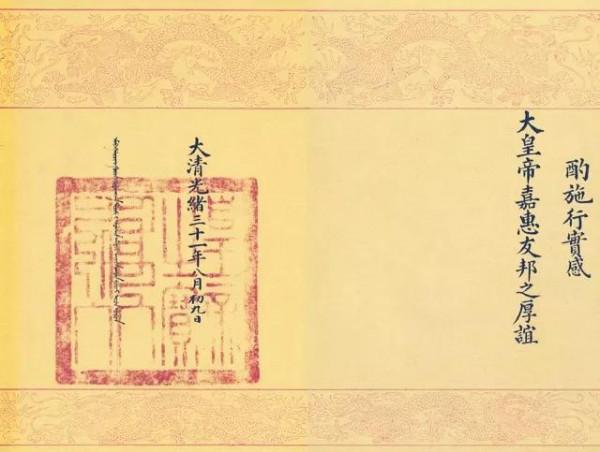 酌施行實感
大皇帝嘉惠友邦之厚誼
大清光緒三十一年八月初九日